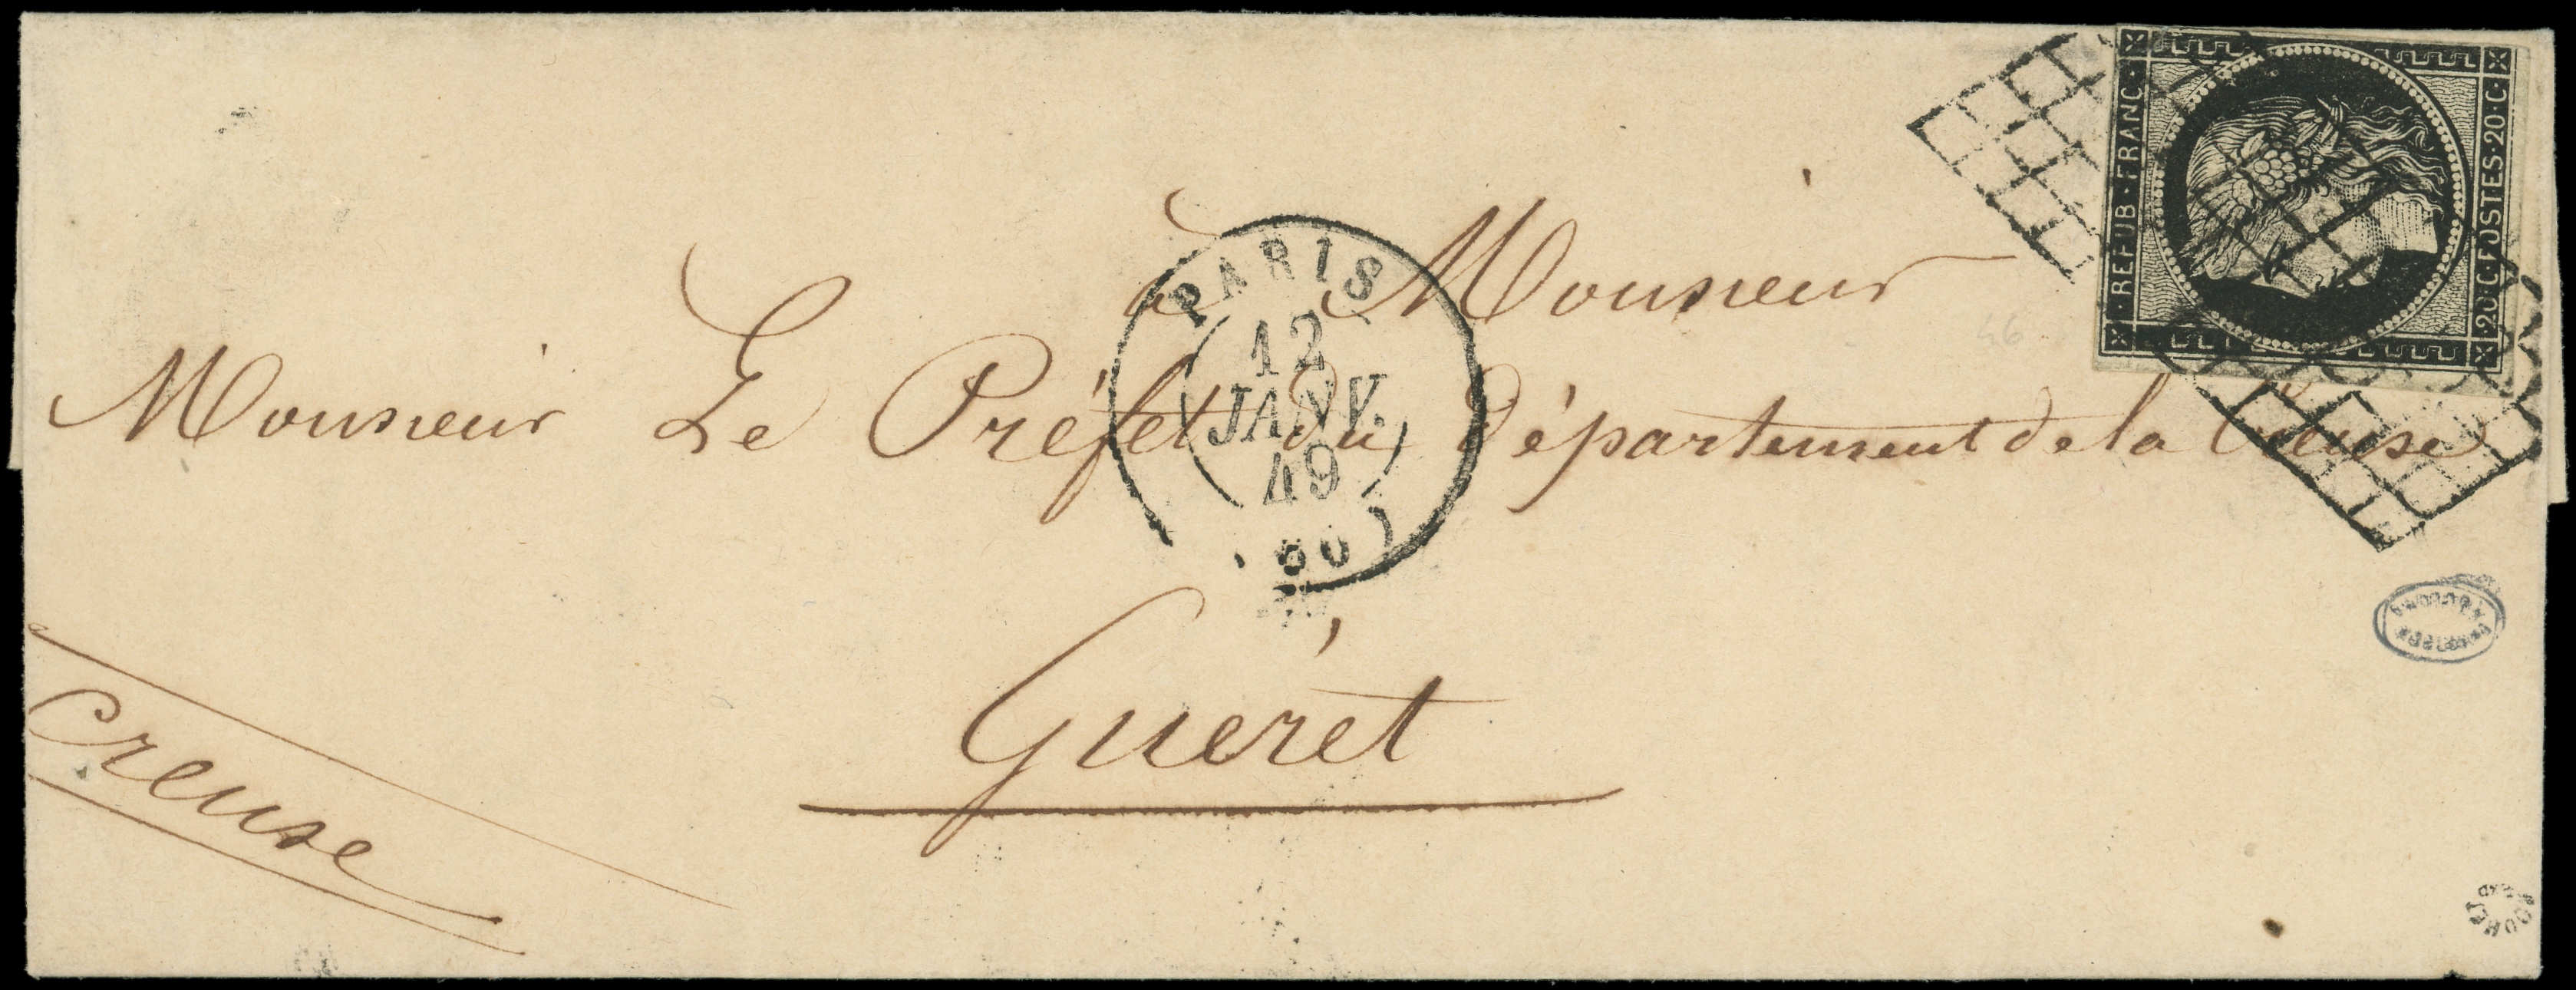 à Monsieur
Monsieur Le Préfet du Département de la Creuse
Guéret
Creuse
PARIS
12
JANV.
49
REPUB·FRANC·
20·C·POSTES·20·C·